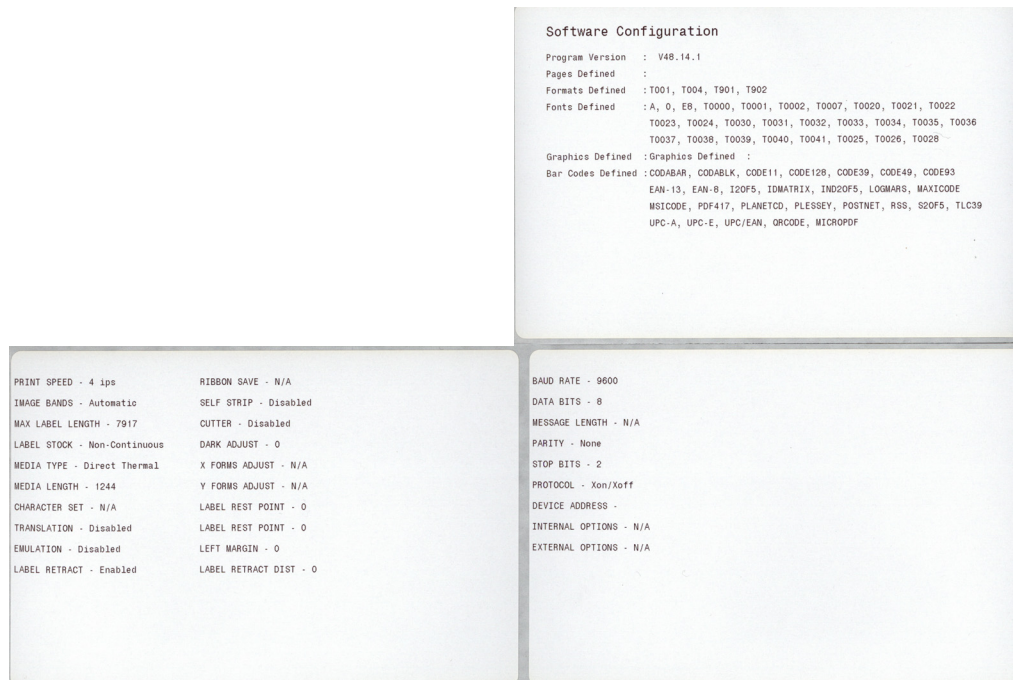 Software Configuration
Program Version : V48.14.1
Pages Defined :
Formats Defined :T001, T004, T901, T902
Fonts Defined :A, 0, E8, T0000, T0001, T0002, T0007, T0020, T0021, T0022
T0023, T0024, T0030, T0031, T0032, T0033, T0034, T0035, T0036
T0037, T0038, T0039, T0040, T0041, T0025, T0026, T0028
Graphics Defined :Graphics Defined :
Bar Codes Defined :CODABAR, CODABLK, CODE11, CODE128, CODE39, CODE49, CODE93
EAN-13, EAN-8, I2OF5, IDMATRIX, IND2OF5, LOGMARS, MAXICODE
MSICODE, PDF417, PLANETCD, PLESSEY, POSTNET, RSS, S2OF5, TLC39
UPC-A, UPC-E, UPC/EAN, QRCODE, MICROPDF
PRINT SPEED - 4 ips
IMAGE BANDS - Automatic
MAX LABEL LENGTH - 7917
LABEL STOCK - Non-Continuous
MEDIA TYPE - Direct Thermal
MEDIA LENGTH - 1244
CHARACTER SET - N/A
TRANSLATION - Disabled
EMULATION - Disabled
LABEL RETRACT - Enabled
RIBBON SAVE - N/A
SELF STRIP - Disabled
CUTTER - Disabled
DARK ADJUST - 0
X FORMS ADJUST - N/A
Y FORMS ADJUST - N/A
LABEL REST POINT - 0
LABEL REST POINT - 0
LEFT MARGIN - 0
LABEL RETRACT DIST - 0
BAUD RATE - 9600
DATA BITS - 8
MESSAGE LENGTH - N/A
PARITY - None
STOP BITS - 2
PROTOCOL - Xon/Xoff
DEVICE ADDRESS -
INTERNAL OPTIONS - N/A
EXTERNAL OPTIONS - N/A